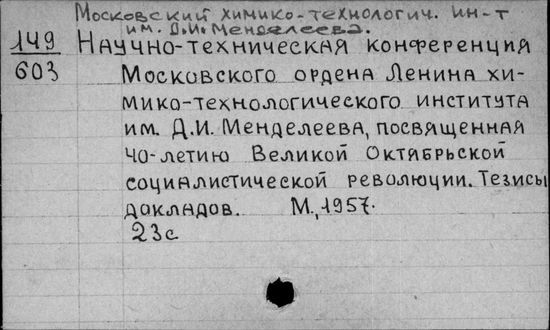 Московский химико-технологич. ин-т
им. Д.И. Менделеева.
149 Научно-техническая конференция
603 Московского ордена Ленина хи-
мико-технологического института
им. Д.И. Менделеева, посвященная
40-летию Великой Октябрьской
социалистической революции. Тезисы
докладов. М., 1957.
23с